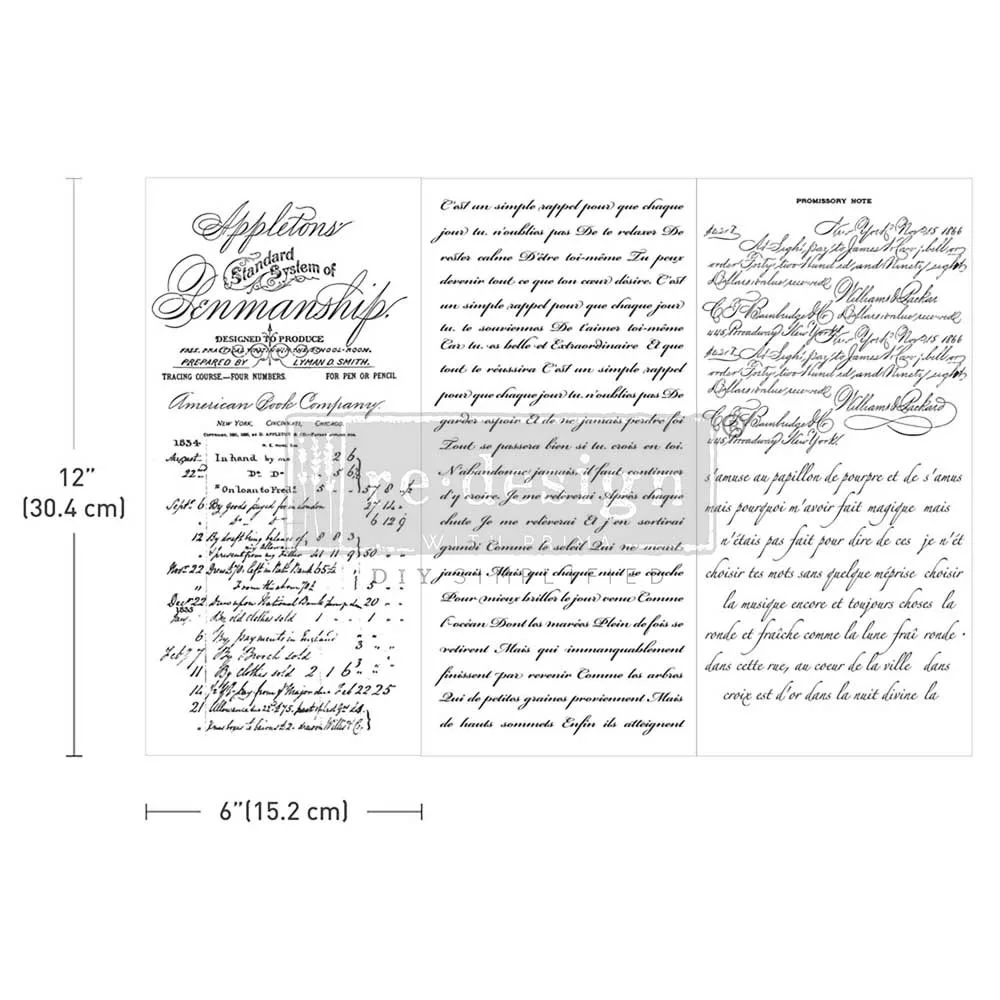 Appletons'
Standard
System of
Penmanship.
DESIGNED TO PRODUCE
FREE, PRACTICAL
SCHOOL-ROOM.
PREPARED BY LYMAN D. SMITH.
TRACING COURSE—FOUR NUMBERS. FOR PEN OR PENCIL
American Book Company.
NEW YORK, CINCINNATI, CHICAGO.
1834
August In hand by me 2 6
22nd Do Do 5 6
"On loan to Fred. 5 57 8
Sept. 6 By goods payed for in London 27 14
6 12 9
12 By draft being balance of 8 8 3
my allowance
present from my Father 41 11 9 50
Nov. 22
From the above 5
Decr. 22 Drew upon National Bank 20
1835
Jany. By old clothes sold 1 1
6 By payments in England 3
Feb 7 7 By Brooch sold 3
11 By clothes sold 2 1 6
14 Feb 22 25
21 Allowance
C'est un simple rappel pour que chaque
jour tu n'oublies pas De te relaxer De
rester calme D'être toi-même Tu peux
devenir tout ce que ton cœur désire. C'est
un simple rappel pour que chaque jour
tu te souviennes De t'aimer toi-même
Car tu es belle et Extraordinaire Et que
tout te réussira C'est un simple rappel
pour que chaque jour tu n'oublies pas De
garder espoir Et de ne jamais perdre foi
Tout se passera bien si tu crois en toi.
N'abandonne jamais, il faut continuer
d'y croire. Je me relèverai Après chaque
chute Je me relèverai Et j'en sortirai
grandi Comme le soleil Qui ne meurt
jamais Mais qui chaque nuit se couche
Pour mieux briller le jour venu Comme
l'océan Dont les marées Plein de fois se
retirent Mais qui immanquablement
finissent par revenir Comme les arbres
Qui de petites graines proviennent Mais
de hauts sommets Enfin ils atteignent
PROMISSORY NOTE
New York Nov 15 1866
At Sight, pay to James W Carr, bill or
order Forty two Hundred, and Ninety eight
Dollars value received
Williams & Packard
C G Bainbridge & Co Dollars value received
445, Broadway New York. New York Nov 15 1866
At Sight, pay to James W Carr, bill or
order Forty two Hundred, and Ninety eight
Dollars value received
Williams & Packard
C G Bainbridge & Co
445, Broadway New York
s'amuse au papillon de pourpre et de s'amus
mais pourquoi m'avoir fait magique mais
n'étais pas fait pour dire de ces je n'ét
choisir tes mots sans quelque méprise choisir
la musique encore et toujours choses la
ronde et fraîche comme la lune fraî ronde
dans cette rue, au coeur de la ville dans
croix est d'or dans la nuit divine la
re·design
WITH PRIMA
DIY SIMPLIFIED
12”
(30.4 cm)
6”(15.2 cm)